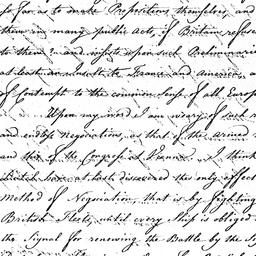 so far as to make Propositions themselves, and
them in many public Acts, if Britain refuses
to them? and insists upon such Preliminaries
at least an insult to France and America, a
of Contempt to the common Sense of all Europe
Upon my word I am weary of such r
and endless Negociations, as that of the armed n
and this of the Congress at Vienna. I think
British have at last discovered the only effect
Method of Negociation, that is by fighting
British Fleets, until every Ship is obliged
the Signal for renewing the Battle by the S